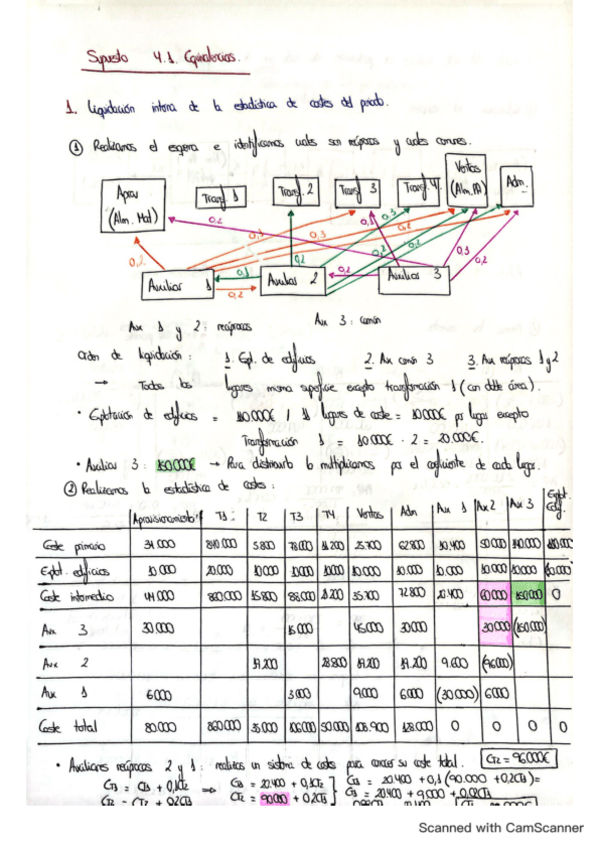 Supuesto 4.1. Equivalencias.
1. Liquidación interna de la estadística de costes del periodo.
① Realizamos el esquema e identificamos cuales son recíprocos y cuales comunes.
Aprov (Alm. Mat)
Transf. 1
Transf. 2
Transf. 3
Transf. 4
Ventas (Alm. PA)
Adm.
0,2 0,3 0,3 0,2 0,3 0,2 0,2 0,3 0,2
0,2 0,1 0,2 0,2
Auxiliar 1
Auxiliar 2
Auxiliar 3
Aux 1 y 2: recíprocos Aux 3: común
Orden de liquidación: 1. Expl. de edificios 2. Aux común 3 3. Aux recíprocos 1 y 2
→ Todos los lugares misma superficie excepto transformación 1 (con doble área).
• Explotación de edificios = / 11 lugares de coste = 10000€ por lugar excepto
Transformación 1 = 10000€ · 2 = 20.000€.
• Auxiliar 3: 150.000€ → Para distribuirlo lo multiplicamos por el coeficiente de cada lugar.
② Realizamos la estadística de costes:
Aprovisionamiento T1 T2 T3 T4 Ventas Adm Aux 1 Aux 2 Aux 3 Expl. Edif.
Coste primario 34.000 840.000 5.800 78.000 25.700 62.800 10.400 50.000 140.000
Expl. edificios 10.000 20.000 10.000 10.000 10.000 10.000 10.000 10.000 10.000 10.000
Coste intermedio 44.000 860.000 15.800 88.000 35.700 72.800 20.400 60.000 150.000 0
Aux 3 30.000 15.000 45.000 30.000 30.000 (150.000)
Aux 2 19.200 28.800 19.200 19.200 9.600 (96.000)
Aux 1 6000 3.000 9.000 6.000 (30.000) 6000
Coste total 80.000 860.000 35.000 106.000 50.000 108.900 128.000 0 0 0 0
• Auxiliares recíprocos 2 y 1: realizamos un sistema de costes para conocer su coste total. CT2 = 96.000€
= + 0,1CT2 ⇒ = 20.400 + 0,1CT2 = 20.400 + 0,1 (90.000 + 0,2 ) =
CT2 = 90.000 + 0,2 = 20.400 + 9.000 +
Scanned with CamScanner